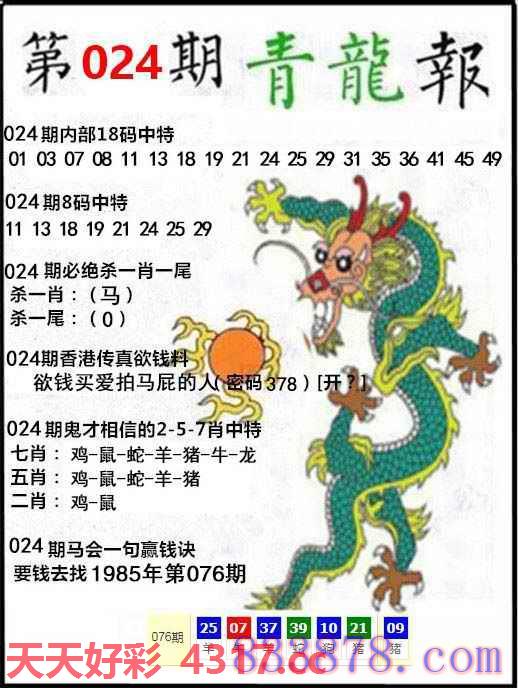 第024期青龍報
024期内部18码中特
01 03 07 08 11 13 18 19 21 24 25 29 31 35 36 41 45 49
024期8码中特
11 13 18 19 21 24 25 29
024 期必绝杀一肖一尾
杀一肖：（马）
杀一尾：（0）
024期香港传真欲钱料
欲钱买爱拍马屁的人(密码378)[开?]
024期鬼才相信的2-5-7肖中特
七肖：鸡-鼠-蛇-羊-猪-牛-龙
五肖：鸡-鼠-蛇-羊-猪
二肖：鸡-鼠
024期马会一句赢钱诀
要钱去找1985年第076期
076期 25 07 37 39 10 21 09
羊 蛇 狗 猪 猪
天天好彩 4317.cc